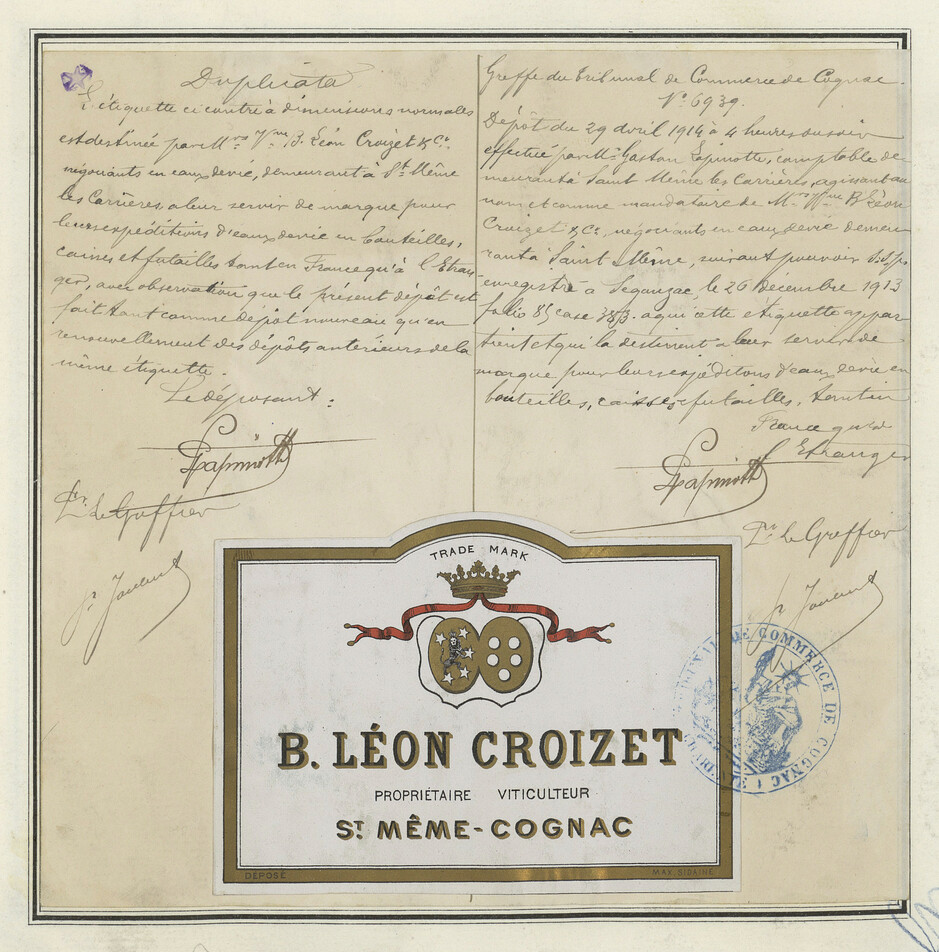 Duplicata
L'étiquette ci contre à dimensions normales
est destinée par Mrs Vve B. Léon Croizet & Cie
négociants en eaux devie, demeurant à St Même
les Carrières, a leur servir de marque pour
leurs expéditions d'eaux devie en bouteilles,
caisses et futailles tant en France qu'à l'Etran
ger, avec observation que le présent dépôt est
fait tant comme dépôt nouveau qu'en
renouvellement des dépôts antérieurs de la
même étiquette.
Le déposant:
Pr le Greffier
Greffe du Tribunal de Commerce de Cognac.
No 6939.
Dépôt du 29 avril 1914 à 4 heures du soir
effectué par Mr Gaston Lapinotte, comptable de
meurant à Saint Même les Carrières, agissant au
nom et comme mandataire de Mrs Vve B Léon
Croizet & Cie, négociants en eaux devie demeu
rant à Saint Même, suivant pouvoir s.s.p.
enregistré à Segonzac, le 26 décembre 1913
folio 85 case a qui cette étiquette appar
tient et qui la destinent a leur servir de
marque pour leurs expéditions d'eaux devie en
bouteilles, caisses futailles, tant en
France qu'à
l'Etranger
Pr le Greffier
TRADE MARK
B. LÉON CROIZET
PROPRIÉTAIRE VITICULTEUR
ST MÊME-COGNAC
DÉPOSÉ
MAX SIDAINE
TRIBUNAL DE COMMERCE DE COGNAC